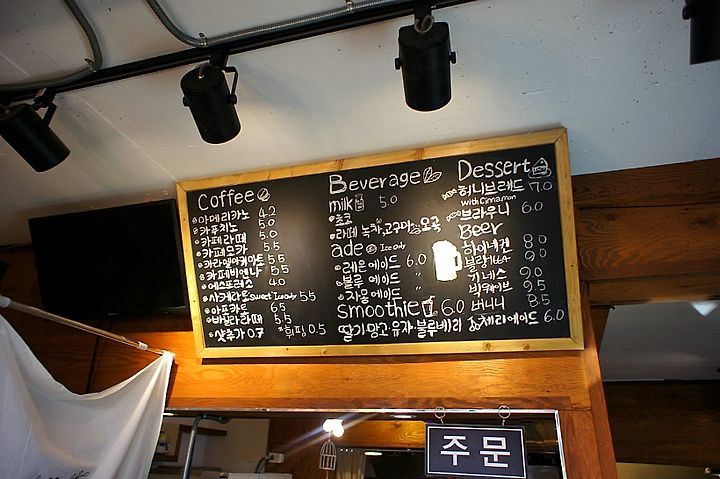 Coffee
아메리카노 4.2
카푸치노 5.0
카페라떼 5.0
카페모카 5.5
카라멜마케아또 5.5
카페비엔나 5.5
에스프레소 4.0
샤케라또 Sweet Ice only 5.5
아포카토 6.5
바닐라라떼 5.5
샷추가 0.7 휘핑 0.5
Beverage
milk 5.0
초코
라떼 녹차, 고구마, 오곡
ade Ice only
레몬에이드 6.0
블루 에이드 "
자몽에이드 "
smoothie 6.0
딸기 망고 유자 블루베리
Dessert
허니브레드 7.0
with Cinnamon
브라우니 6.0
Beer
하이네켄 8.0
9.0
기네스 9.0
9.5
버니니 8.5
체리에이드 6.0
주문